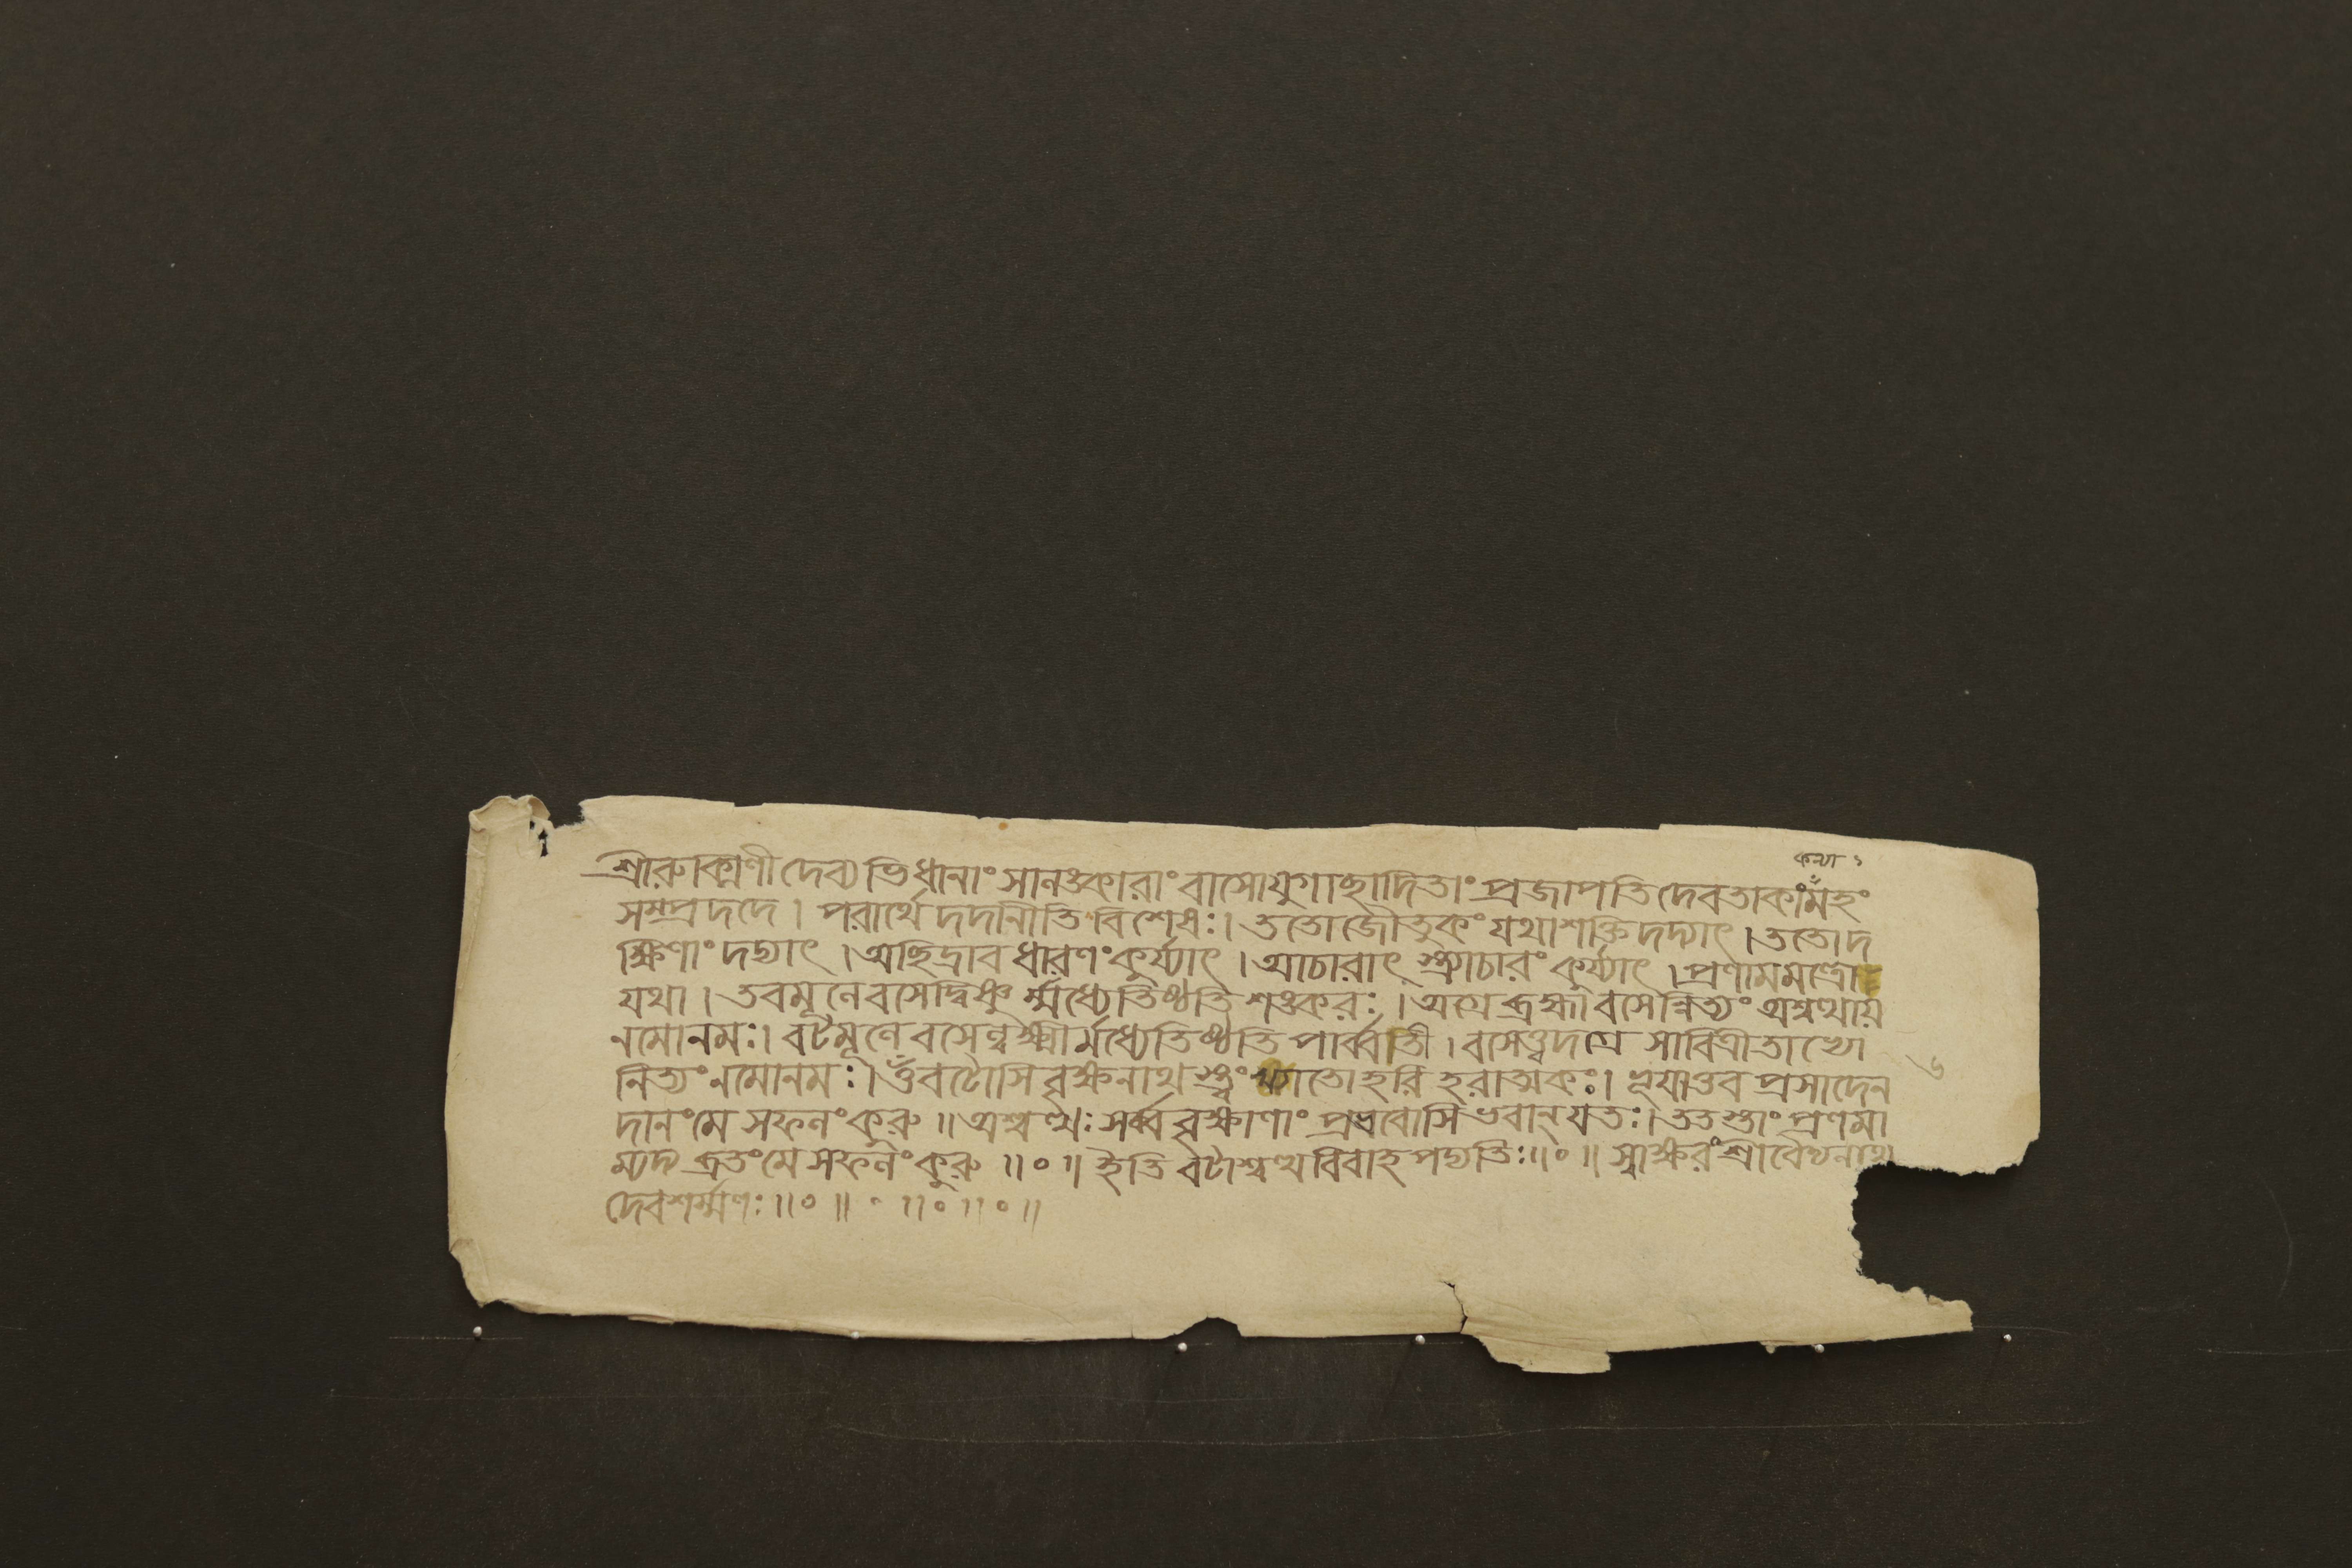 কন্যা ১
শ্রীরুক্মিণীদেব্যভিধানাং সালঙ্কারাং বাসোযুগাছাদিতাং প্রজাপতিদেবতাকাংমহং
সম্প্রদদে । পরার্থে দদানীতি বিশেষঃ । ততো জৌতুকং যথাশক্তি দদ্যাৎ । ততো দ
ক্ষিণাং দদ্যাৎ । অছিদ্রাবধারণং কুর্য্যাৎ । আচারাৎ স্ত্র্যাচারং কুর্য্যাৎ । প্রণামমন্ত্রো
যথা । তবমূলে বসেদ্বিষ্ণুর্ম্মধ্যে তিষ্ঠতি শঙ্করঃ । অগ্রে ব্রহ্মা বসেন্নিত্যং অশ্বত্থায়
নমোনমঃ । বটমূলে বসেল্লক্ষ্মীর্মধ্যে তিষ্ঠতি পার্ব্বতী । বসেত্তদগ্রে সাবিত্রী তাভ্যো
নিত্যং নমোনমঃ । ওঁ বটোসি বৃক্ষনাথস্ত্বং খ্যাতো হরিহরাত্মকঃ । ত্বয়াতব প্রসাদেন
দানং মে সফলং কুরু ॥ অশ্বত্থঃ সর্ব্ববৃক্ষাণাং প্রধবোসি ভবান্ যতঃ । ততস্তাং প্রণমা
ম্যদ্য ব্রতং মে সফলং কুরু ॥ ০ ॥ ইতি বটাশ্বত্থবিবাহপদ্ধতিঃ ॥ ০ ॥ স্বাক্ষরং শ্রীবৈদ্যনাথ
দেবশর্ম্মণঃ ॥ ০ ॥ ০ ॥ ০ ॥ ০ ॥
৬